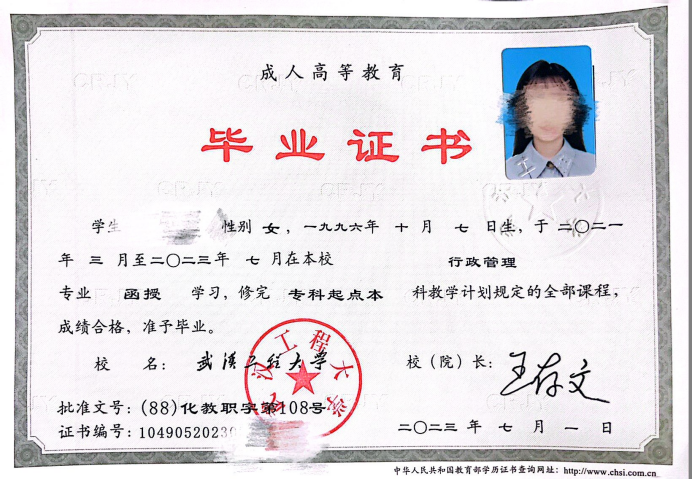 成人高等教育
毕业证书
学生 性别 女，一九九六年 十 月 七 日生，于 二〇二一
年 三 月至二〇二三年 七 月在本校 行政管理
专业 函授 学习，修完 专科起点本 科教学计划规定的全部课程，
成绩合格，准予毕业。
校 名：武汉工程大学
校（院）长：王存文
批准文号：(88)化教职字第108号
证书编号：1049052023
二〇二三年 七 月 一 日
中华人民共和国教育部学历证书查询网址：http://www.chsi.com.cn